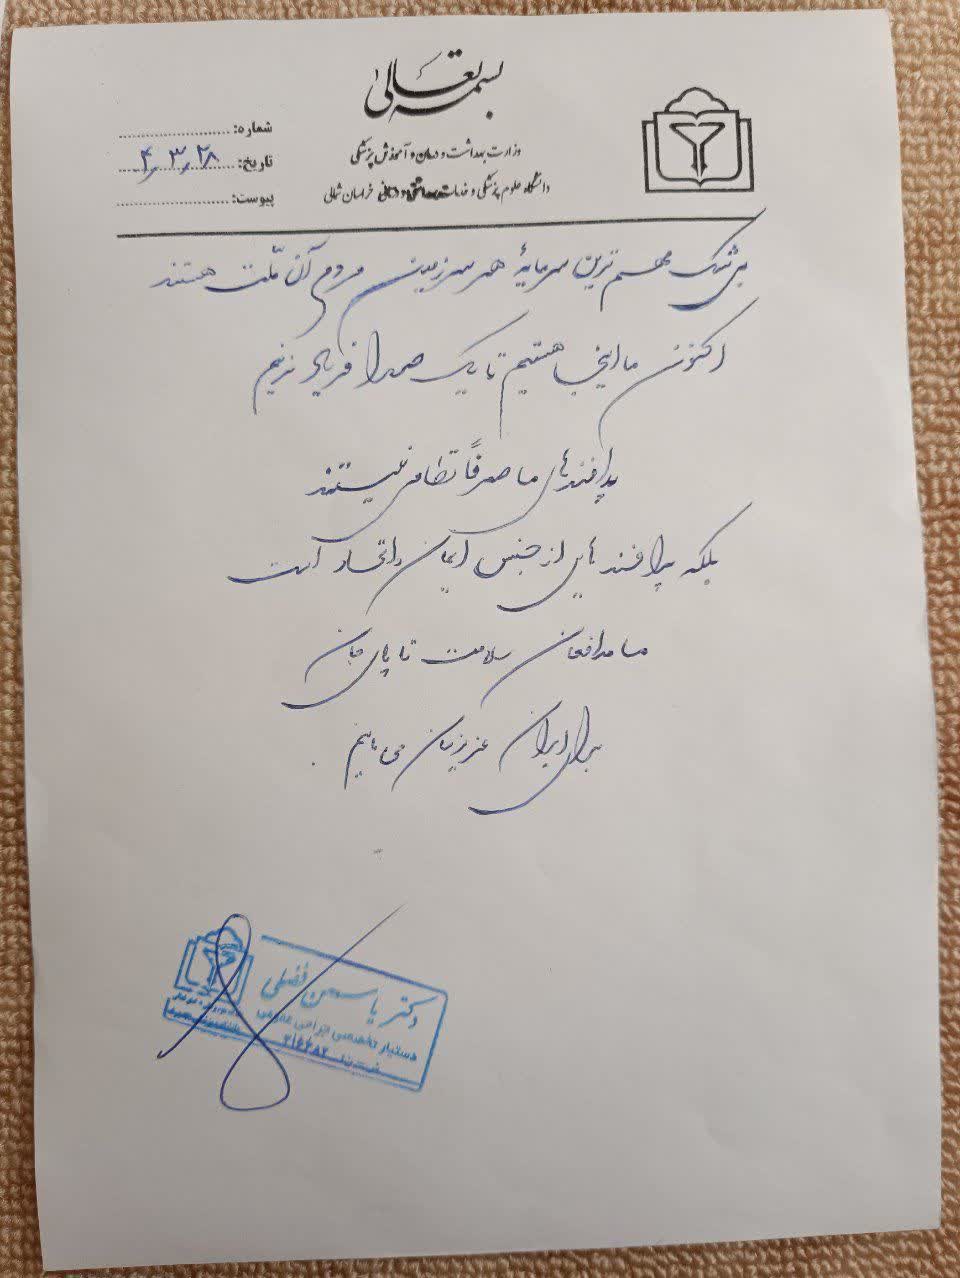 بسمه تعالی
وزارت بهداشت و درمان و آموزش پزشکی
دانشگاه علوم پزشکی و خدمات بهداشتی و درمانی خراسان شمالی
شماره:
تاریخ: ۴٫۳٫۲۸
پیوست:
بی شک مهم ترین سرمایهٔ هر سرزمین مردم آن ملّت هستند
اکنون ما اینجا هستیم تا یک صدا فریاد بزنیم
پدافندهای ما صرفاً نظامی نیستند
بلکه پدافندهایی از جنس ایمان و اتحاد است
ما مدافعان سلامت تا پای جان
برای ایران عزیزمان می مانیم.
دکتر یاسمن فضلی
دستیار تخصصی جراحی عمومی